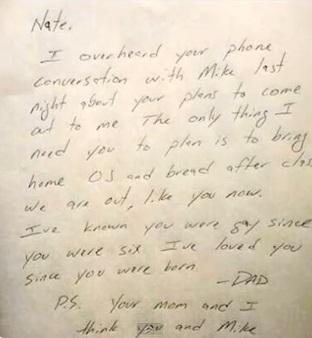 Nate.
I overheard your phone
conversation with Mike last
night about your plans to come
out to me The only thing I
need you to plan is to bring
home OJ and bread after clas
we are out, like you now.
I've known you were gay since
you were six I've loved you
since you were born
-DAD
P.S. Your mom and I
think you and Mike